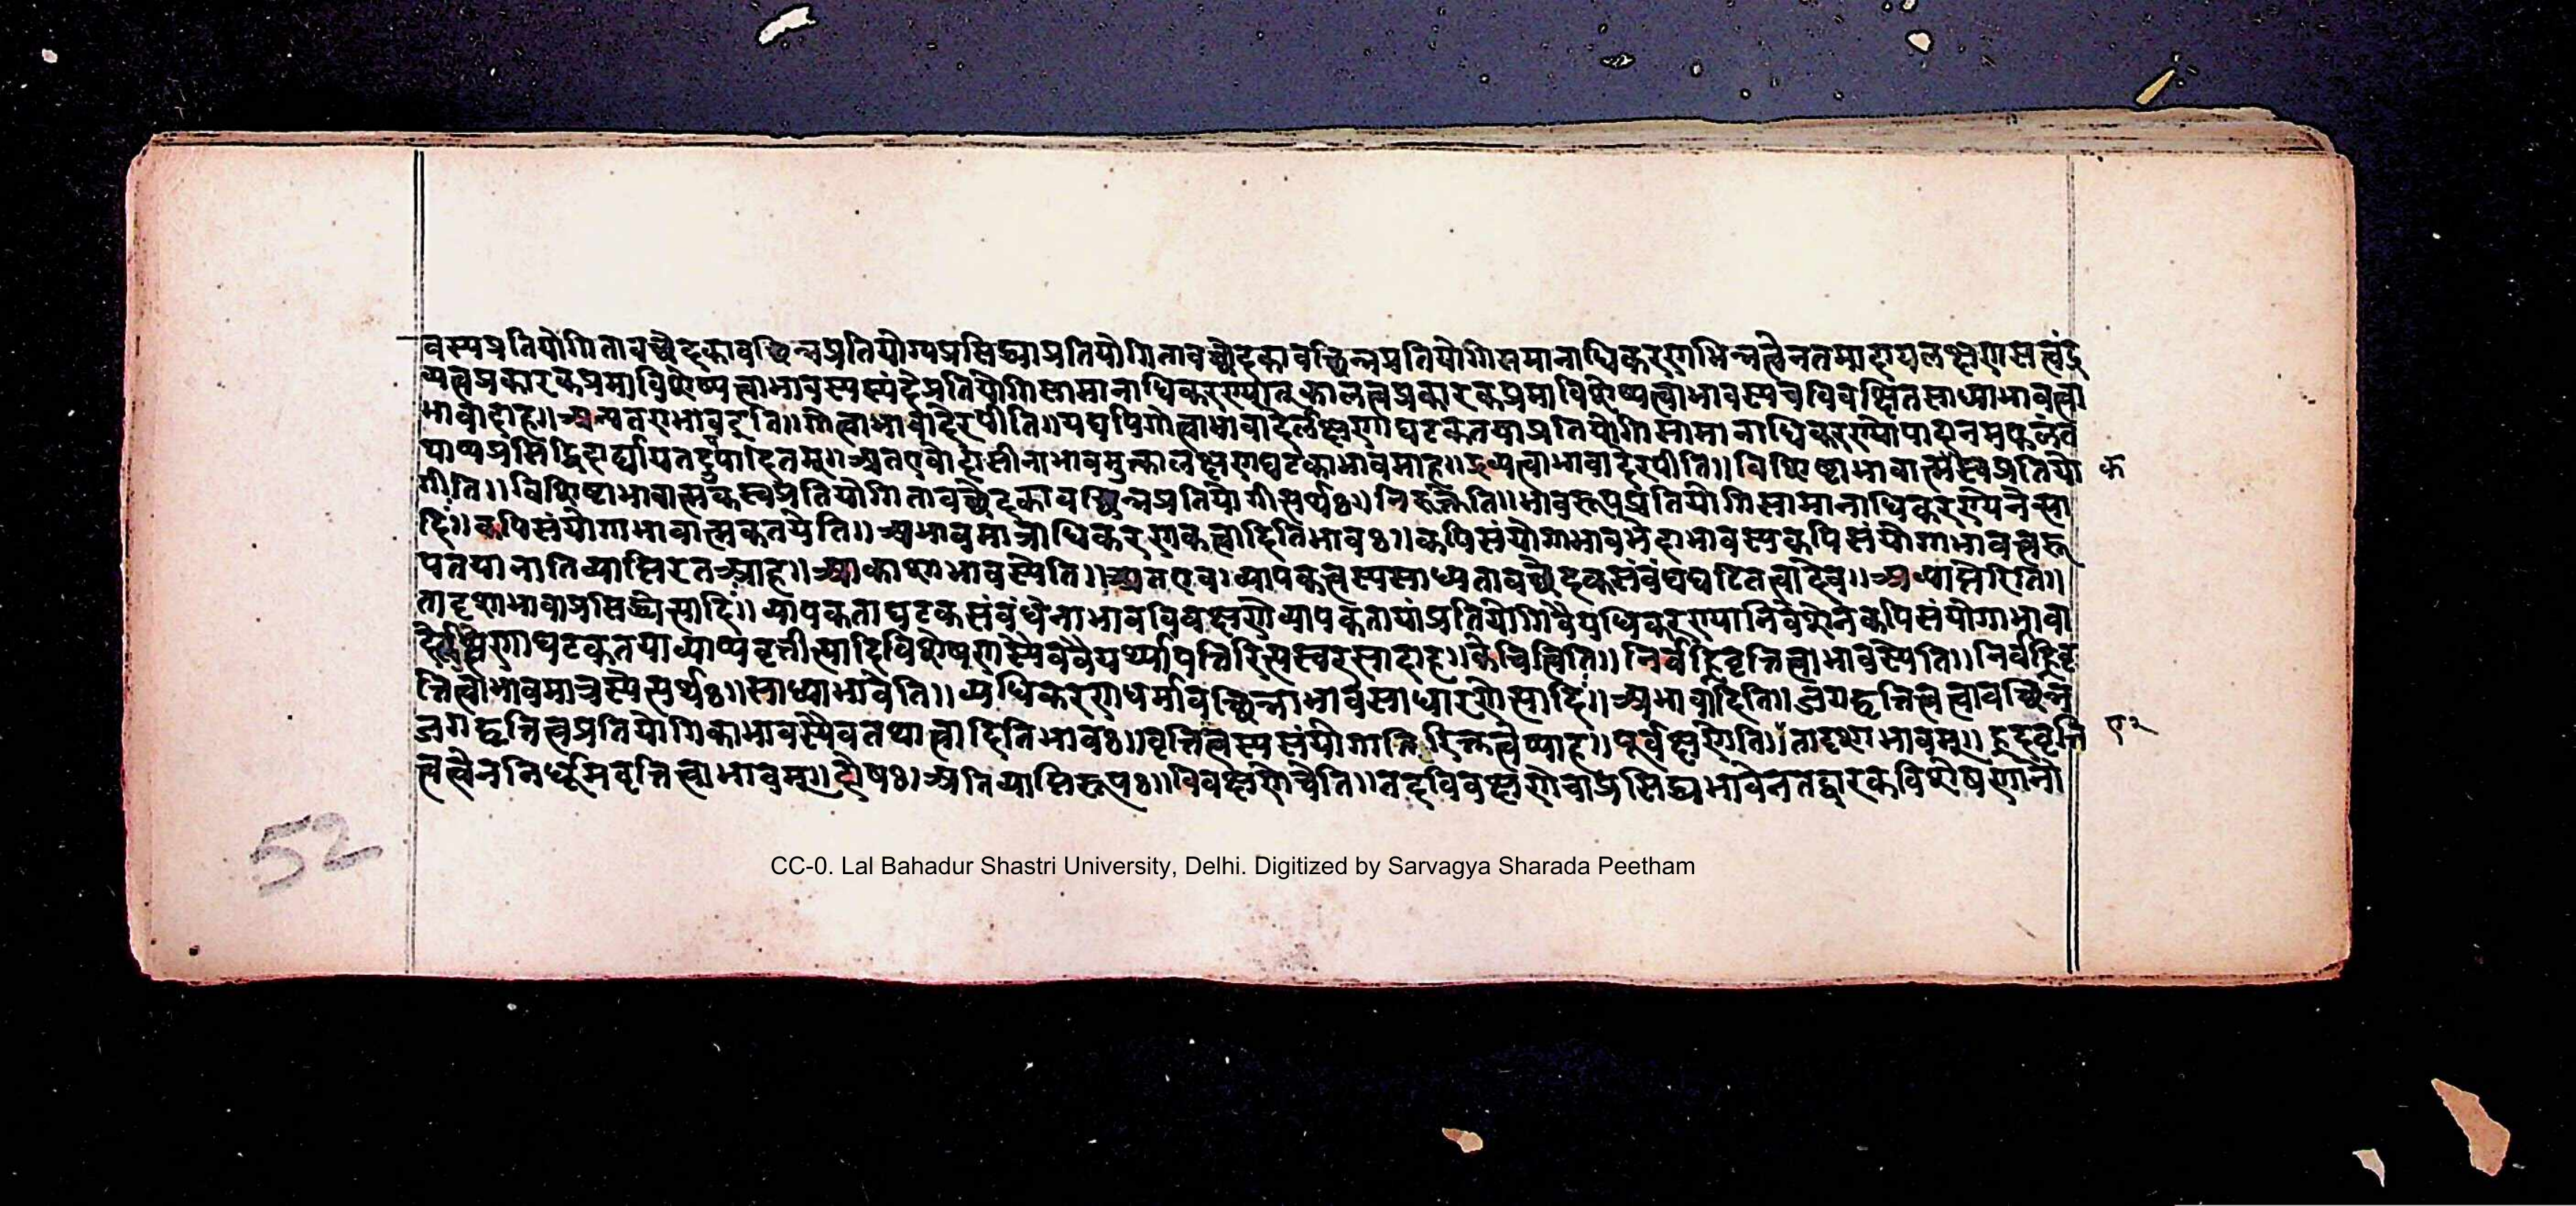 वस्यप्रतियोगितावच्छेदकावच्छिन्नप्रतियोग्यप्रसिद्ध्याप्रतियोगितावच्छेदकावच्छिन्नप्रतियोगिसमानाधिकरणभिन्नत्वेनतमादायलक्षणसत्वंद्र
व्यत्वप्रकारकप्रमाविशेष्यत्वाभावस्यस्पंदेप्रतियोगिसामानाधिकरण्यात्कालत्वप्रकारकप्रमाविशेष्यत्वाभावस्यचविवक्षितसाध्याभावत्वा
भावादाह॥अन्यतराभावइति॥गोत्वाभावादेरपीति॥यद्यपिगोत्वाभावादेर्लक्षणाघटकतयाप्रतियोगिसामानाधिकरण्योपादानमफलंव
याप्यप्रसिद्धिदार्ढ्यायतदुपादितम्॥अतएवोदासीनाभावमुक्त्वालक्षणघटकाभावमाह॥द्रव्यत्वाभावादेरपीति॥विशिष्टाभावात्मस्वप्रतियो
क
गीति॥विशिष्टाभावात्मकस्वप्रतियोगितावच्छेदकावच्छिन्नप्रतियोगीत्यर्थः॥निरुक्तेति॥भावरूपप्रतियोगिसामानाधिकरण्येनेत्या
दिः॥कपिसंयोगाभावात्मकतयेति॥अभावमात्राधिकरणकत्वादितिभावः॥कपिसंयोगाभावभेदाभावस्यकपिसंयोगाभावत्वरू
पतयानातिव्याप्तिरतआह॥आकाशाभावस्येति॥अतएव।व्यापकत्वस्यसाध्यतावच्छेदकसंबंधघटितत्वादेव॥अव्याप्तेरिति॥
तादृशाभावाप्रसिद्ध्येत्यादिः॥व्यापकताघटकसंबंधेनाभावविवक्षणेव्यापकतायांप्रतियोगिवैयधिकरण्यानिवेशेनकपिसंयोगाभावा
देर्लक्षणाघटकतयाव्याप्यवृत्तीत्यादिविशेषणस्यैववैयर्थ्यापत्तिरित्यस्वरसादाह॥केचित्त्विति॥निर्वह्निवृत्तित्वाभावस्येति॥निर्वह्निवृ
त्तित्वाभावमात्रस्येत्यर्थः॥साध्याभावेति॥व्यधिकरणधर्मावच्छिन्नाभावसाधारणेत्यादिः॥अभावादिति॥जगद्वृत्तित्वत्वावच्छिन्न
जगद्वृत्तित्वप्रतियोगिकाभावस्यैवतथात्वादितिभावः॥वृत्तित्वस्यसंयोगातिरिक्तत्वेप्याह॥पूर्वक्षणेति॥तादृशाभावम्॥ह्रदवृत्ति
९२
त्वत्वेननिर्धूमवृत्तित्वाभावम्॥दोषः।अतिव्याप्तिरूपः॥विवक्षणेचेति॥तदविवक्षणेचाप्रसिद्ध्यभावेनतद्वारकविशेषणानो
52
CC-0. Lal Bahadur Shastri University, Delhi. Digitized by Sarvagya Sharada Peetham